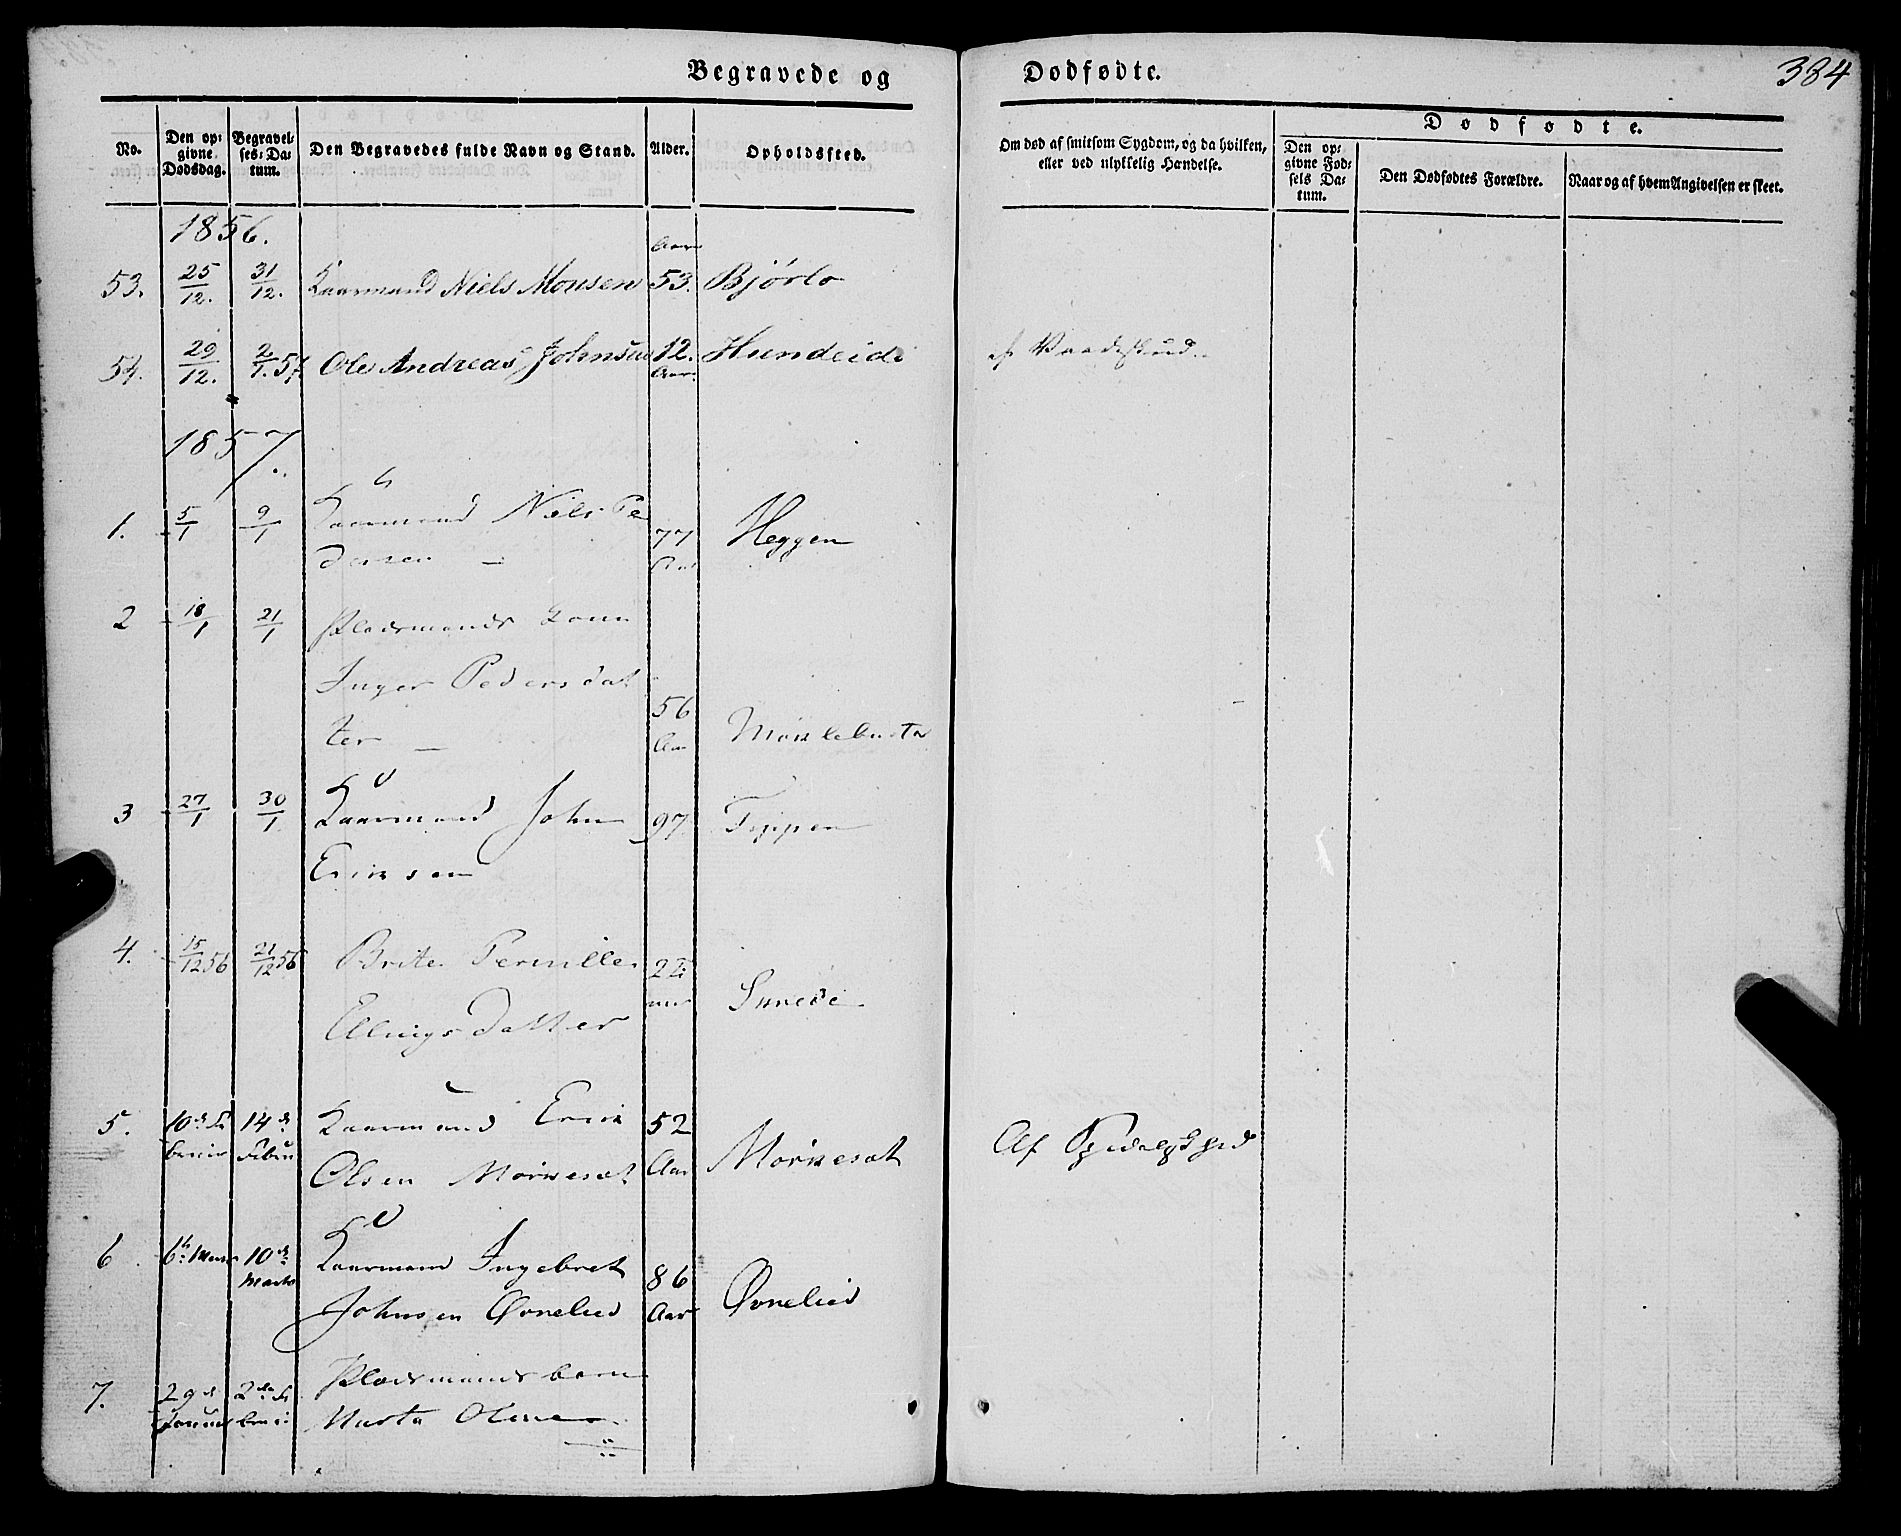 Begravede og Dødfødte. 384
No. Den opgivne Dødsdag. Begravelses-Datum. Den Begravedes fulde Navn og Stand. Alder. Opholdssted. Om død af smitsom Sygdom, og da hvilken, eller ved ulykkelig Hændelse. Dødfødte.
Den opgivne Fødsels Datum. Den Dødfødtes Forældre. Naar og af hvem Angivelsen er skeet.
1856.
Aar
53. 25/12. 31/12. Kaarmand Niels Monsen 53. Bjørlo
54. 29/12. 2/1. 57. Ole Andreas Johnsen 12. Hundeide af Vaadeskud.
Aar.
1857.
1. 5/1 9/1 Kaarmand Niels Pe
dersen 77 Heggen
Aar
2 18/1 21/1 Pladsmands Kone
Inger Pedersdat
ter 56
Aar
3 27/1 30/1 Kaarmand John 97.
Eriksen
4. 15/12 56 21/12 56 Brite Pernille
Ellingsdatter
5. 10de 14de Kaarmand Erik 52
Olsen Mörkesæt Aar Mörkesæt Af Spedalskhed
6 6te Marts 10de Marts Kaarmand Ingebret 86
Johnsen Ørnelied Aar Ørnelied
7. 29de 2den Pladsmandsbarn
Januar Marta